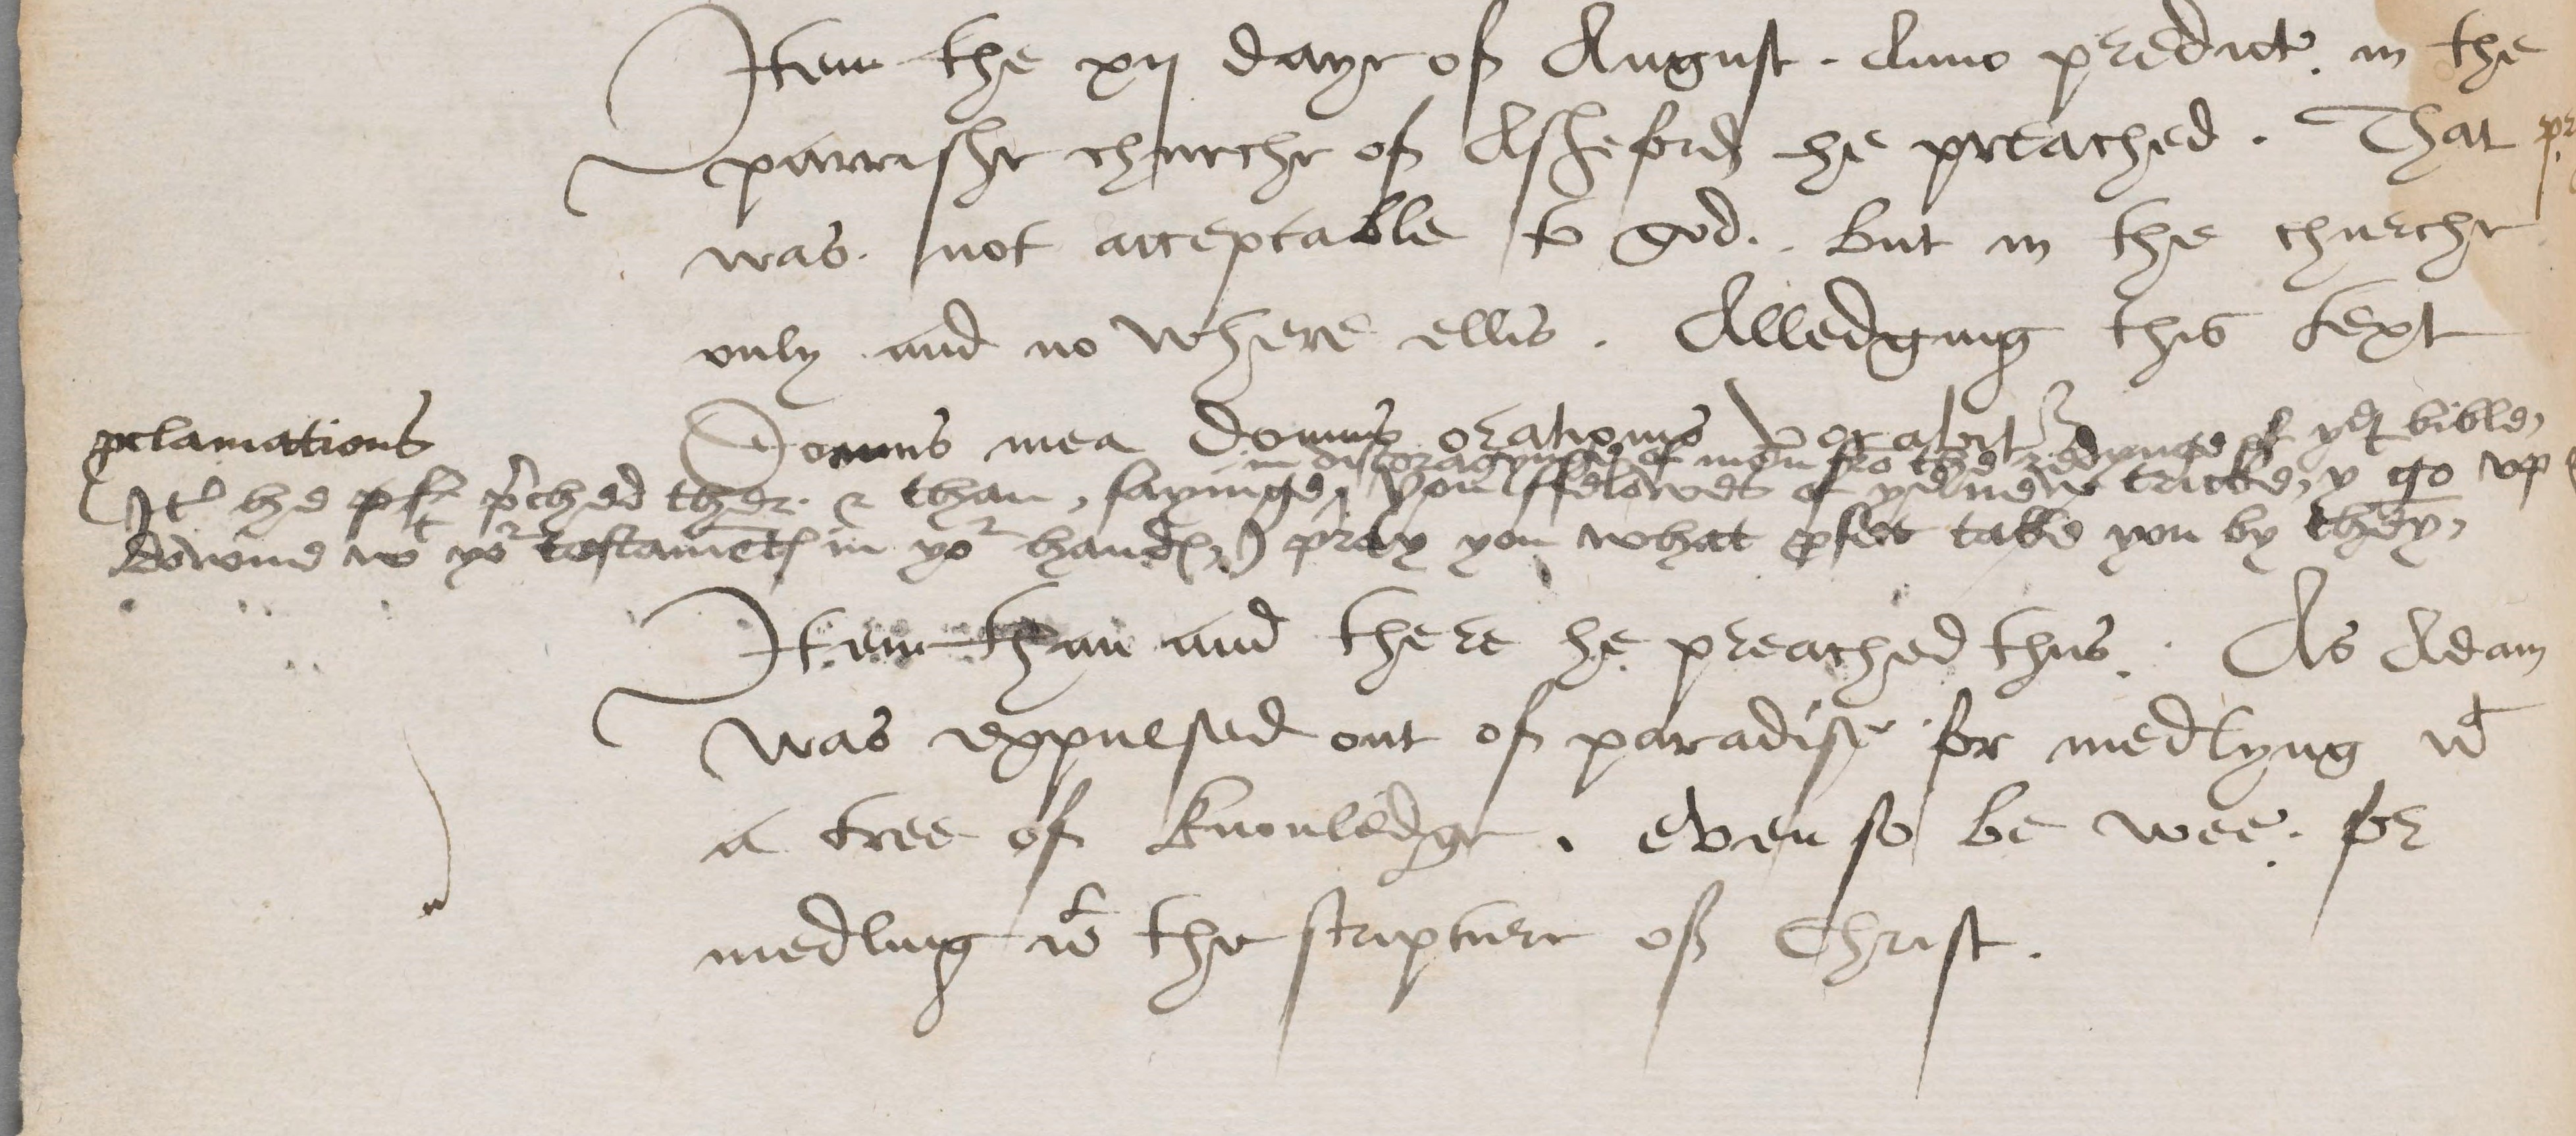 Item the xij daye of August. Anno predict. in the
parrishe churche of Asheford he preached. That
was. not acceptable to god.. but in the churche
only and no where ellis. Alledging this text
Domus mea domus orationis vocabitur
pclamations
in discoragynge of men fro the redynge of ye bible,
It he pched ther. & than, sayinge, you ffelowes of ye new tricke, y go vp
downe wt yor testamēt in yor hand, I pray you what pfet take you by they,
Item than and there he preached thus. As Adam
was expulsed out of paradise for medlyng wt
a tree of knouledge. even so be wee. for
medling wt the scripture of Christ.